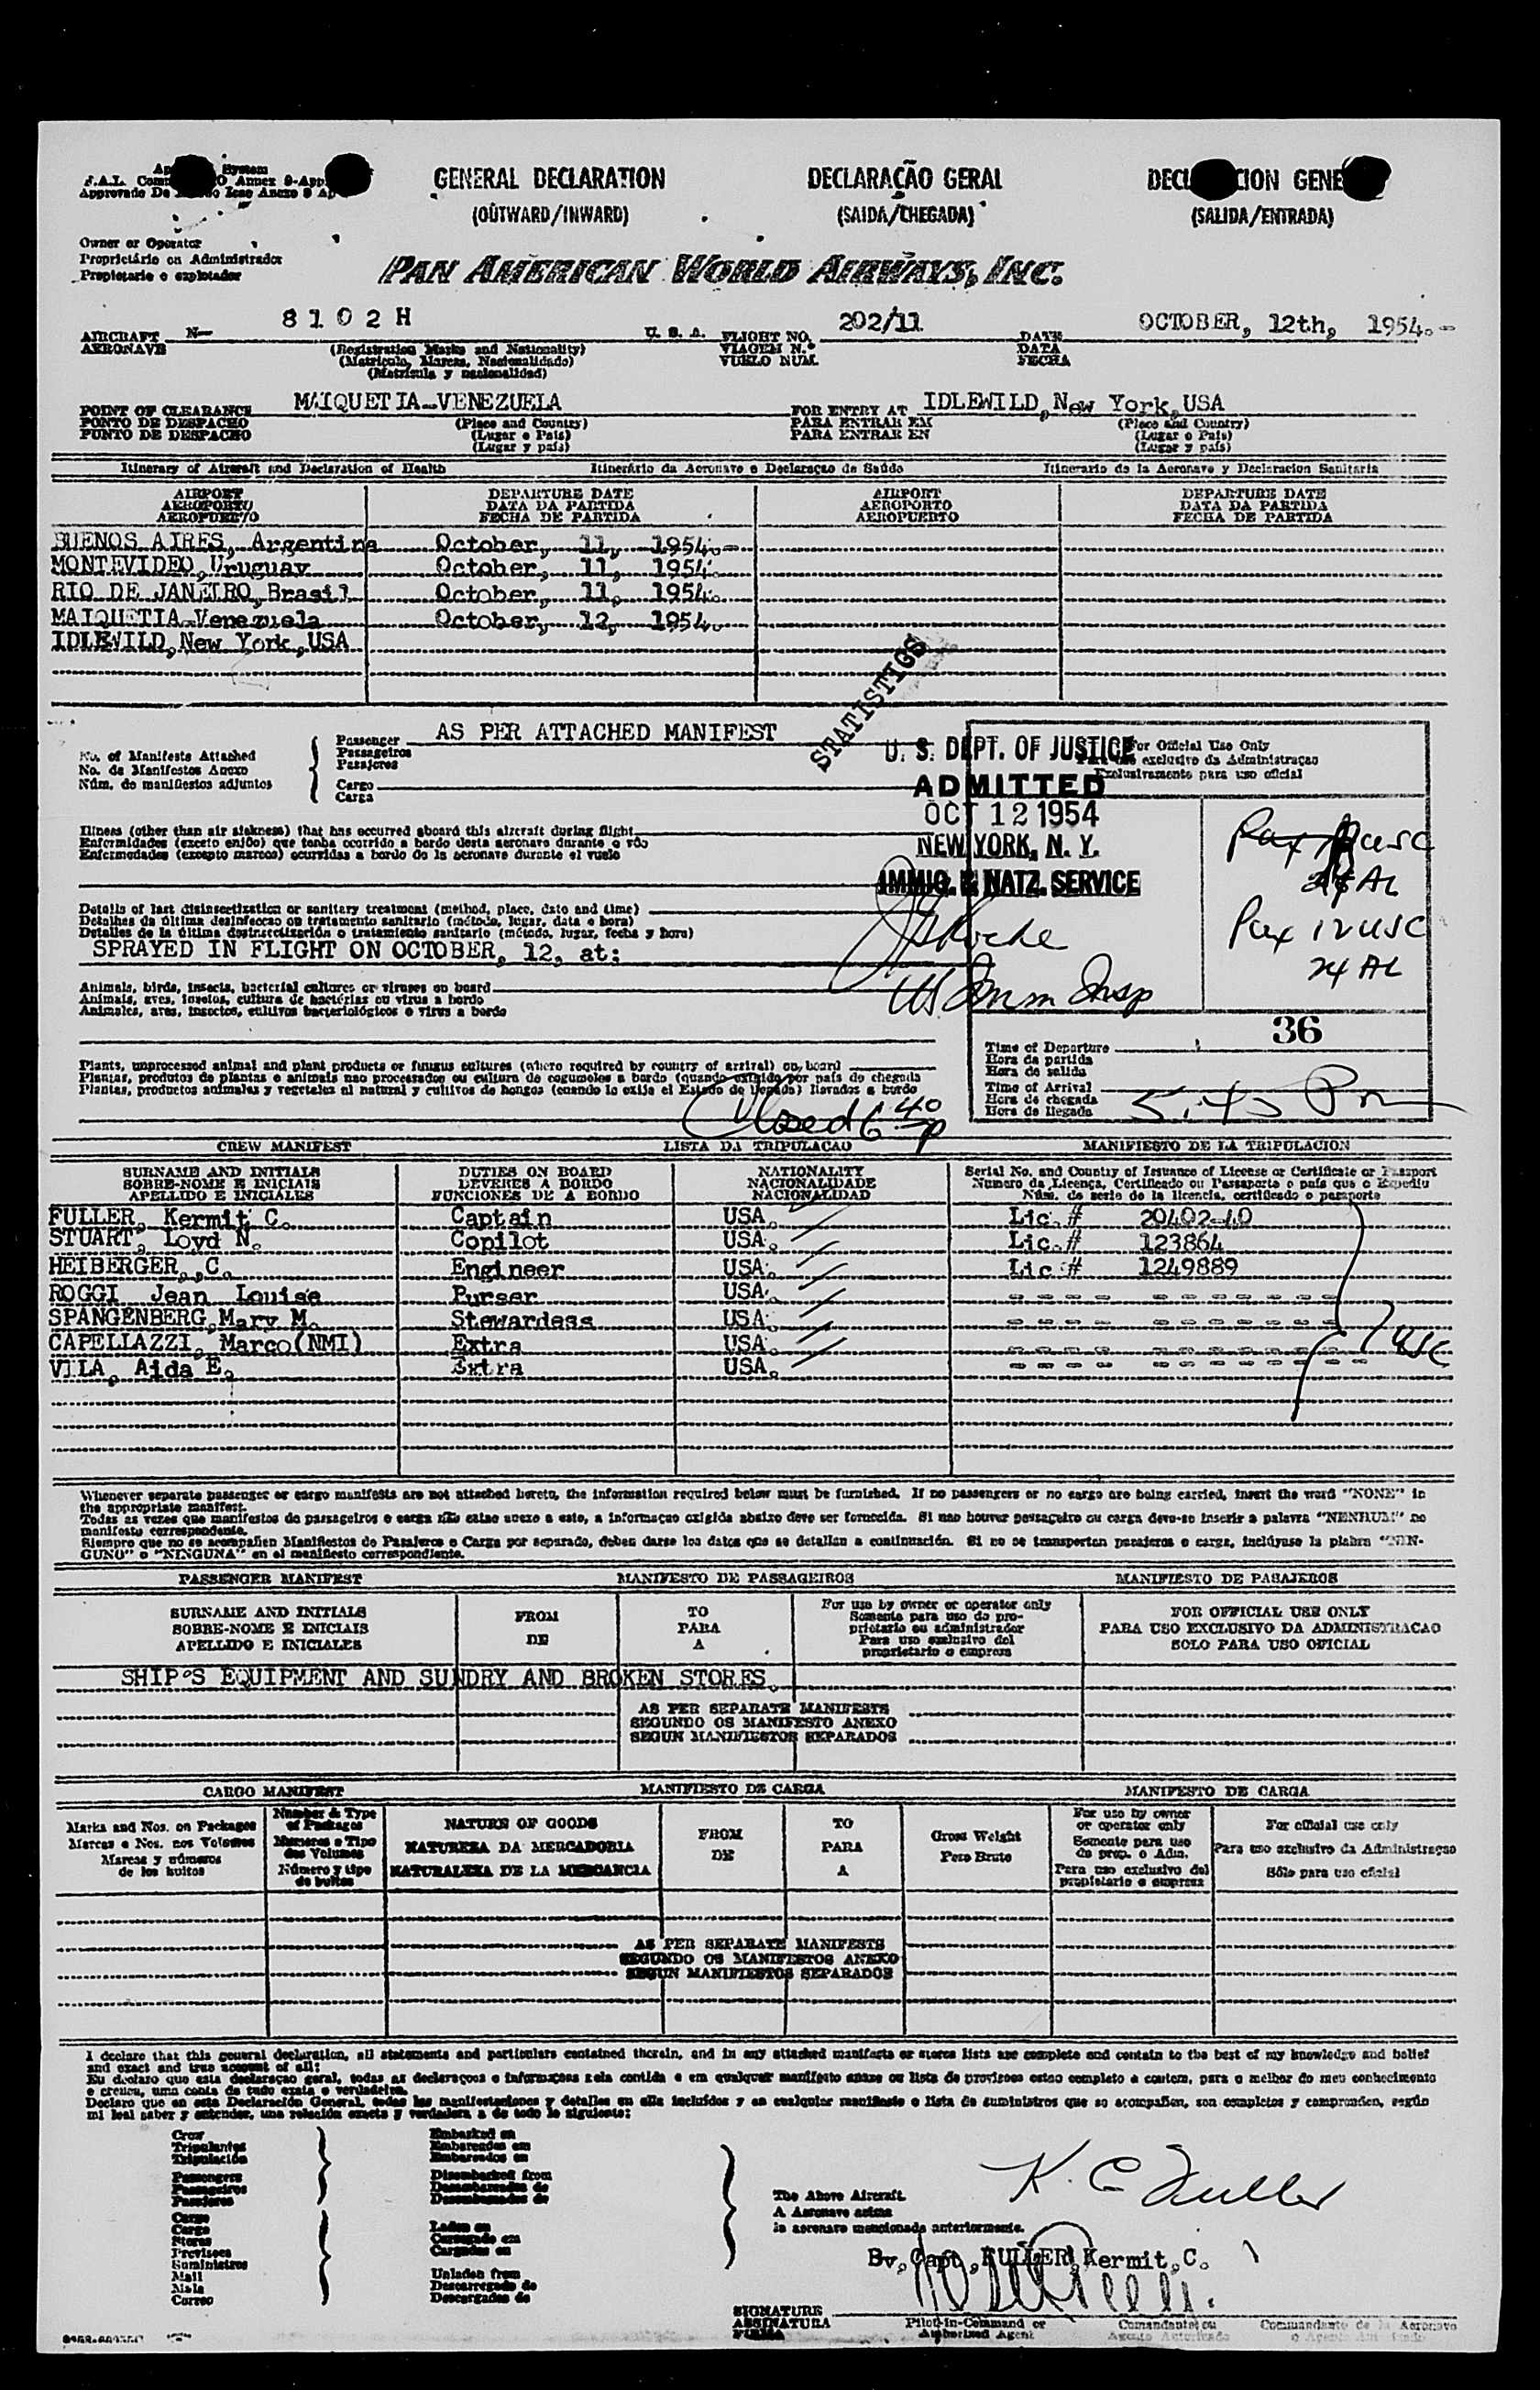 GENERAL DECLARATION
(OUTWARD/INWARD)
DECLARAÇÃO GERAL
(SAIDA/CHEGADA)
(SALIDA/ENTRADA)
Owner or Operator
Proprietário ou Administrador
Propietario o explotador
PAN AMERICAN WORLD AIRWAYS, INC.
AIRCRAFT N- 8102H U. S. A. FLIGHT NO. 202/11 DATE OCTOBER, 12th, 1954.-
AERONAVE (Registration Marks and Nationality) VIAGEM N.° DATA
(Matricula, Marcas, Nacionalidade) VUELO NUM. FECHA
(Matrícula y nacionalidad)
POINT OF CLEARANCE MAIQUETIA-VENEZUELA FOR ENTRY AT IDLEWILD, New York, USA
PONTO DE DESPACHO (Place and Country) PARA ENTRAR EM (Place and Country)
PUNTO DE DESPACHO (Lugar e País) PARA ENTRAR EN (Lugar e País)
(Lugar y país) (Lugar y país)
Itinerary of Aircraft and Declaration of Health Itinerário da Aeronave e Declaraçao de Saúde Itinerario de la Aeronave y Declaracion Sanitaria
AIRPORT DEPARTURE DATE AIRPORT DEPARTURE DATE
AEROPORTO DATA DA PARTIDA AEROPORTO DATA DA PARTIDA
AEROPUERTO FECHA DE PARTIDA AEROPUERTO FECHA DE PARTIDA
BUENOS AIRES, Argentina October, 11, 1954.-
MONTEVIDEO, Uruguay October, 11, 1954.
RIO DE JANEIRO, Brasil October, 11, 1954.
MAIQUETIA-Venezuela October, 12, 1954.
IDLEWILD, New York, USA
STATISTICS
AS PER ATTACHED MANIFEST
No. of Manifests Attached
No. de Manifestos Anexo
Núm. de manifiestos adjuntos
Passenger
Passageiros
Pasajeros
Cargo
Carga
For Official Use Only
exclusivo da Administraçao
Exclusivamente para uso oficial
U. S. DEPT. OF JUSTICE
ADMITTED
OCT 12 1954
NEW YORK, N. Y.
IMMIG. & NATZ. SERVICE
US Imm Insp
Pax 12 USC
24 AL
36
Illness (other than air sickness) that has occurred aboard this aircraft during flight
Enfermidades (exceto enjôo) que tenha ocorrido a bordo desta aeronave durante o vôo
Enfermedades (excepto mareos) ocurridas a bordo de la aeronave durante el vuelo
Details of last disinsectization or sanitary treatment (method, place, date and time)
Detalhes da última desinfeccao ou tratamento sanitario (método, lugar, data e hora)
Detalles de la última desinsectización o tratamiento sanitario (método, lugar, fecha y hora)
SPRAYED IN FLIGHT ON OCTOBER, 12, at:
Animals, birds, insects, bacterial cultures or viruses on board
Animais, aves, insetos, cultura de bactérias ou virus a bordo
Animales, aves, insectos, cultivos bacteriológicos o virus a bordo
Plants, unprocessed animal and plant products or fungus cultures (where required by country of arrival) on board
Plantas, produtos de plantas e animais nao processados ou cultura de cogumelos a bordo (quando exigido por pais de chegada
Plantas, productos animales y vegetales al natural y cultivos de hongos (cuando lo exija el Estado de llegada) llevados a bordo
Closed 6 40 p
Time of Departure
Hora da partida
Hora de salida
Time of Arrival 5:45 Pm
Hora de chegada
Hora de llegada
CREW MANIFEST LISTA DA TRIPULACAO MANIFIESTO DE LA TRIPULACION
SURNAME AND INITIALS DUTIES ON BOARD NATIONALITY Serial No. and Country of Issuance of License or Certificate or Passport
SOBRE-NOME E INICIAIS DEVERES A BORDO NACIONALIDADE Numero da Licença, Certificado ou Passaporte o país que o Expediu
APELLIDO E INICIALES FUNCIONES DE A BORDO NACIONALIDAD Núm. de serie de la licencia, certificado o pasaporte
FULLER, Kermit C. Captain USA. Lic. # 20402-40
STUART, Loyd N. Copilot USA. Lic. # 123864
HEIBERGER, C. Engineer USA. Lic # 1249889
ROGGI Jean Louise Purser USA.
SPANGENBERG, Mary M. Stewardess USA.
CAPELLAZZI, Marco (NMI) Extra USA.
VILA, Aida E. Extra USA.
7 USC
Whenever separate passenger or cargo manifests are not attached hereto, the information required below must be furnished. If no passengers or no cargo are being carried, insert the word "NONE" in
the appropriate manifest.
Todas as vezes que manifestos de passageiros e carga não estao anexo a este, a informaçao exigida abaixo deve ser fornecida. Si nao houver passageiro ou carga deve-se inserir a palavra "NENHUM" no
manifesto correspondente.
Siempre que no se acompañen Manifiestos de Pasajeros o Carga por separado, deben darse los datos que se detallan a continuación. Si no se transportan pasajeros o carga, inclúyase la plabra "NIN-
GUNO" o "NINGUNA" en el manifiesto correspondiente.
PASSENGER MANIFEST MANIFESTO DE PASSAGEIROS MANIFIESTO DE PASAJEROS
SURNAME AND INITIALS FROM TO For use by owner or operator only FOR OFFICIAL USE ONLY
SOBRE-NOME E INICIAIS DE PARA Somente para uso do pro- PARA USO EXCLUSIVO DA ADMINISTRACAO
APELLIDO E INICIALES A prietario ou administrador SOLO PARA USO OFICIAL
Para uso exclusivo del
proprietario o empresa
SHIP'S EQUIPMENT AND SUNDRY AND BROKEN STORES.
AS PER SEPARATE MANIFESTS
SEGUNDO OS MANIFESTO ANEXO
SEGUN MANIFIESTOS SEPARADOS
CARGO MANIFEST MANIFIESTO DE CARGA MANIFESTO DE CARGA
Marks and Nos. on Packages Number & Type of Packages NATURE OF GOODS FROM TO Gross Weight For use by owner or operator only For official use only
Marcas e Nos. nos Volumes Numeros e Tipo dos Volumes NATUREZA DA MERCADORIA DE PARA Peso Bruto Somente para uso do prop. o Adm. Para uso exclusivo da Administraçao
Marcas y números de los bultos Número y tipo de bultos NATURALEZA DE LA MERCANCIA A Para uso exclusivo del propietario o empresa Sólo para uso oficial
AS PER SEPARATE MANIFESTS
SEGUNDO OS MANIFESTOS ANEXO
SEGUN MANIFIESTOS SEPARADOS
I declare that this general declaration, all statements and particulars contained therein, and in any attached manifests or stores lists are complete and contain to the best of my knowledge and belief
and exact and true account of all:
Eu declaro que esta declaraçao geral, todas as declaraçoes e informaçoes nela contida e em qualquer manifesto anexo ou lista de provisoes estao completo e contem, para o melhor do meu conhecimento
e crença, uma conta de tudo exata e verdadeira.
Declaro que en esta Declaración General, todas las manifestaciones y detalles en ella incluídos y en cualquier manifiesto o lista de suministros que se acompañen, son completos y comprenden, según
mi leal saber y entender, una relación exacta y verdadera a de todo lo siguiente:
Crew
Tripulantes
Tripulación
Passengers
Passageiros
Pasajeros
Cargo
Carga
Stores
Provisoes
Suministros
Mail
Mala
Correo
Embarked on
Embarcados em
Embarcados en
Disembarked from
Desembarcados de
Desembarcados de
Laden on
Carregado em
Cargados en
Unladen from
Descarregado de
Descargados de
The Above Aircraft
A Aeronave acima
la aeronave mencionada anteriormente.
K. C Fuller
By, Capt, FULLER, Kermit, C.
SIGNATURE
ASSINATURA
FIRMA
Pilot-in-Command or
Authorized Agent
Comandante ou
Agente Autorizado
Comandante de la Aeronave